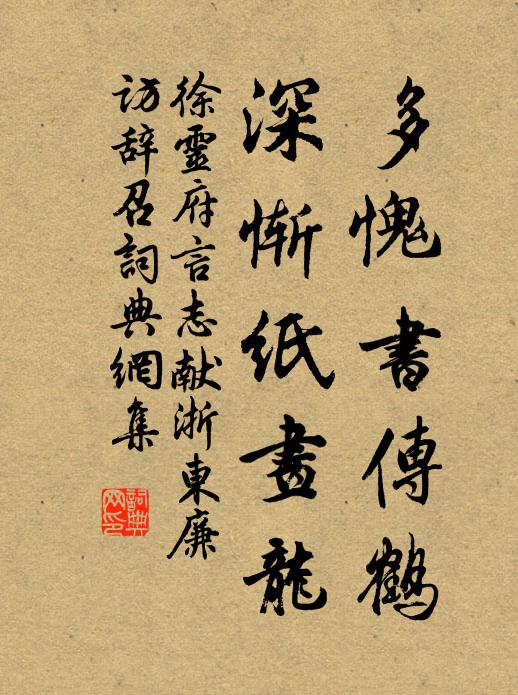 多愧書傳鶴
深慚紙畫龍
徐靈府言志献浙東廉
访辞召詞典網集
詞典网印